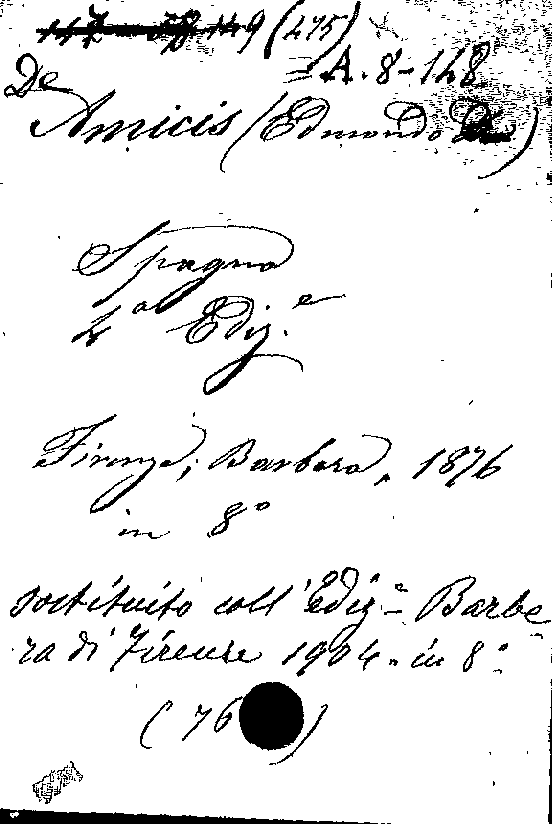 (475)
A. 8-148
De
Amicis (Edmondo De)
Spagna
4ª Ediz.e
Firenze, Barbera, 1876
in 8º
sostituito coll'Ediz.e Barbe
ra di Firenze 1904. in 8º
(76 )